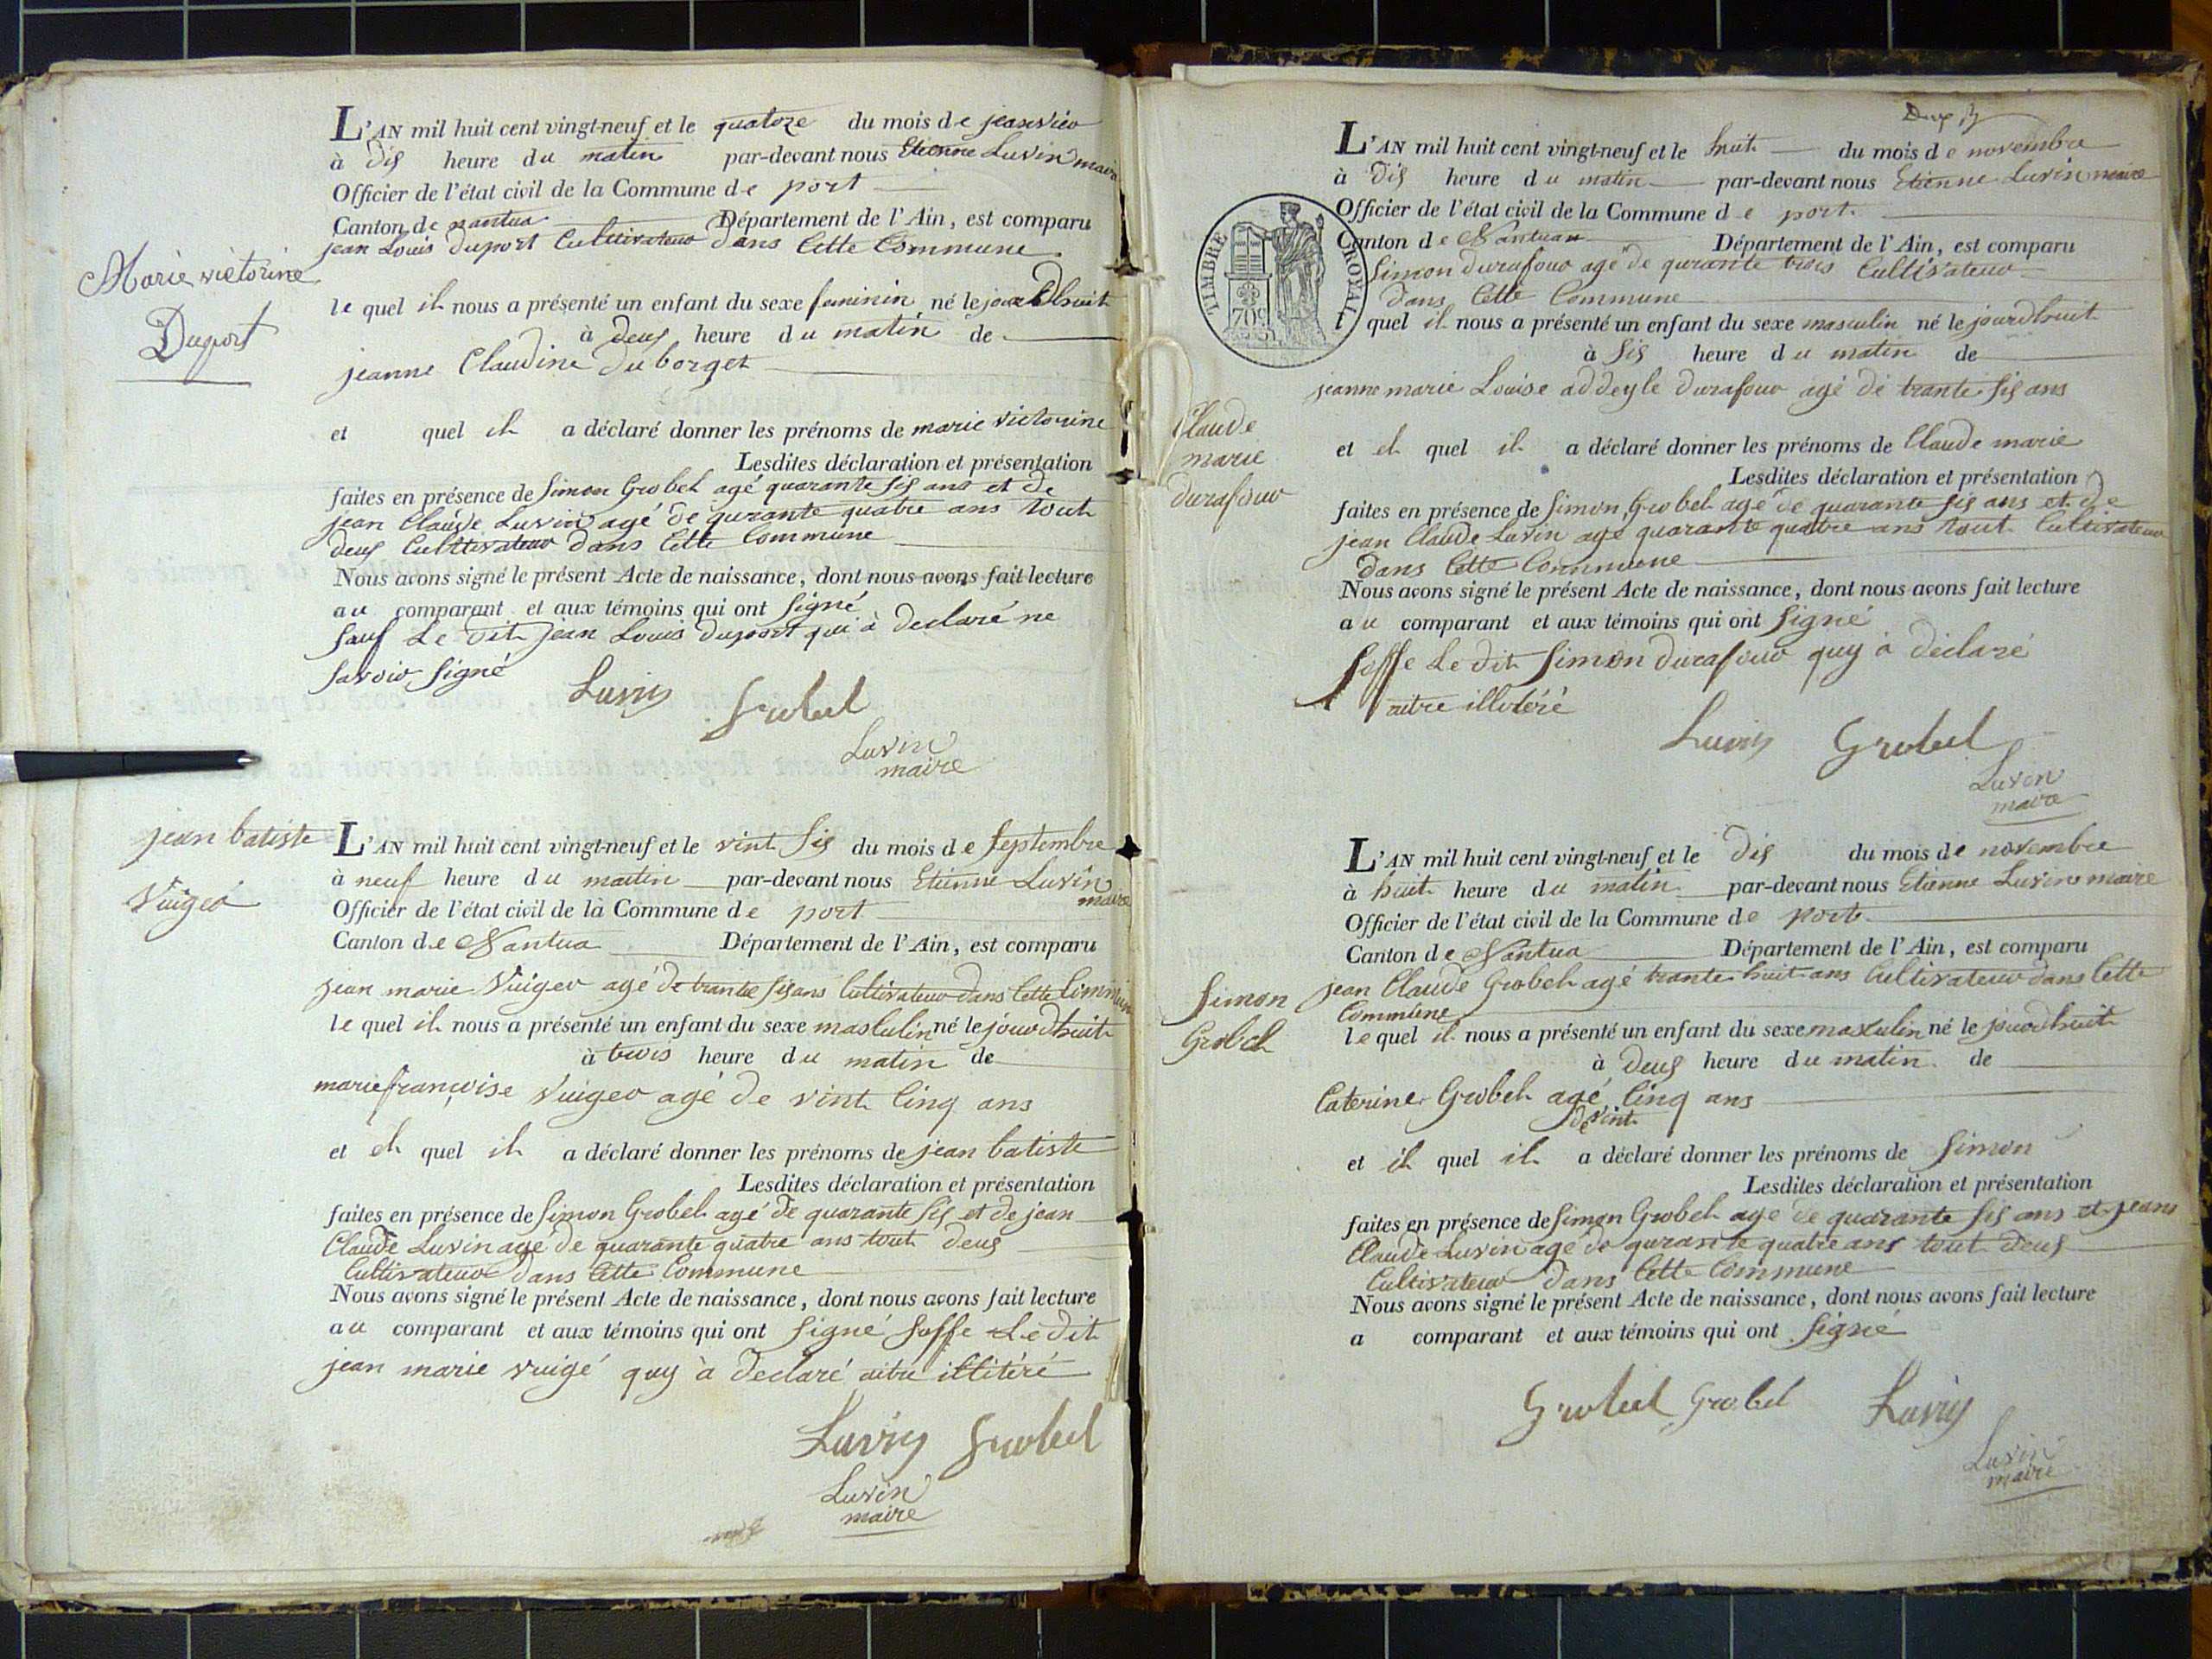 Marie victorine
Duport
L'AN mil huit cent vingt-neuf et le quatoze du mois de jeanvier
à dis heure du matin par-devant nous Etienne Luvin maire
Officier de l'état civil de la Commune de port
Canton de nantua Département de l'Ain, est comparu
jean Louis duport Cultivateur dans Cette Commune
le quel il nous a présenté un enfant du sexe feminin né le jourdhuit
à deus heure du matin de
jeanne Claudine duborget
et quel il a déclaré donner les prénoms de marie victorine
Lesdites déclaration et présentation
faites en présence de Simon Grobel agé quarante sis ans et de
jean Claude Luvin agé de qurante quatre ans tout
deus Cultivateur dans Cette Commune
Nous avons signé le présent Acte de naissance, dont nous avons fait lecture
au comparant et aux témoins qui ont signé
sauf Le dit jean Louis duport qui à declaré ne
savoir signé
Luvin Grobel
Luvin
maire
jean batiste
Vuiger
L'AN mil huit cent vingt-neuf et le vint sis du mois de septembre
à neuf heure du maitin par-devant nous Etienne Luvin
maire
Officier de l'état civil de la Commune de port
Canton de Nantua Département de l'Ain, est comparu
jean marie Vuiger agé de trante sis ans Cultivateur dans Cette Commune
le quel il nous a présenté un enfant du sexe masculin né le jourdhuit
à trois heure du matin de
marie françoise Vuiger agé de vint Cinq ans
et el quel il a déclaré donner les prénoms de jean batiste
Lesdites déclaration et présentation
faites en présence de Simon Grobel agé de quarante sis et de jean
Claude Luvin agé de quarante quatre ans tout deus
Cultivateur dans Cette Commune
Nous avons signé le présent Acte de naissance, dont nous avons fait lecture
au comparant et aux témoins qui ont signé soffe Le dit
jean marie vuigé quy à declaré aitre illitéré
Luvin Grobel
Luvin
maire
TIMBRE ROYAL
70c
Claude
marie
durafour
L'AN mil huit cent vingt-neuf et le huit du mois de novembre
à dis heure du matin par-devant nous Etienne Luvin maire
Officier de l'état civil de la Commune de port
Canton de Nantua Département de l'Ain, est comparu
Simon durafour agé de qurante trois Cultivateur
dans Cette Commune
l quel il nous a présenté un enfant du sexe masculin né le jourdhuit
à sis heure du matin de
jeanne marie Louise addeyle durafour agé de trante sis ans
et el quel il a déclaré donner les prénoms de Claude marie
Lesdites déclaration et présentation
faites en présence de Simon Grobel agé de quarante sis ans et de
jean Claude Luvin agé quarante quatre ans tout Cultivateur
dans Cette Commune
Nous avons signé le présent Acte de naissance, dont nous avons fait lecture
au comparant et aux témoins qui ont signé
soffe Le dit Simon durafour quy à déclaré
aitre illetéré
Luvin Grobel
Luvin
maire
Simon
Grobel
L'AN mil huit cent vingt-neuf et le dis du mois de novembre
à huit heure du matin par-devant nous Etienne Luvin maire
Officier de l'état civil de la Commune de port
Canton de Nantua Département de l'Ain, est comparu
jean Claude Grobel agé trante huit ans Cultivateur dans Cette
Commune
le quel il nous a présenté un enfant du sexe masculin né le jourdhuit
à deus heure du matin de
Caterine Grobel agé Cinq ans
de vint
et il quel il a déclaré donner les prénoms de Simon
Lesdites déclaration et présentation
faites en présence de Simon Grobel age de quarante sis ans et jean
Claude Luvin agé de qurante quatre ans tout deus
Cultivateur dans Cette Commune
Nous avons signé le présent Acte de naissance, dont nous avons fait lecture
a comparant et aux témoins qui ont signé
Grobel Grobel Luvin
Luvin
maire